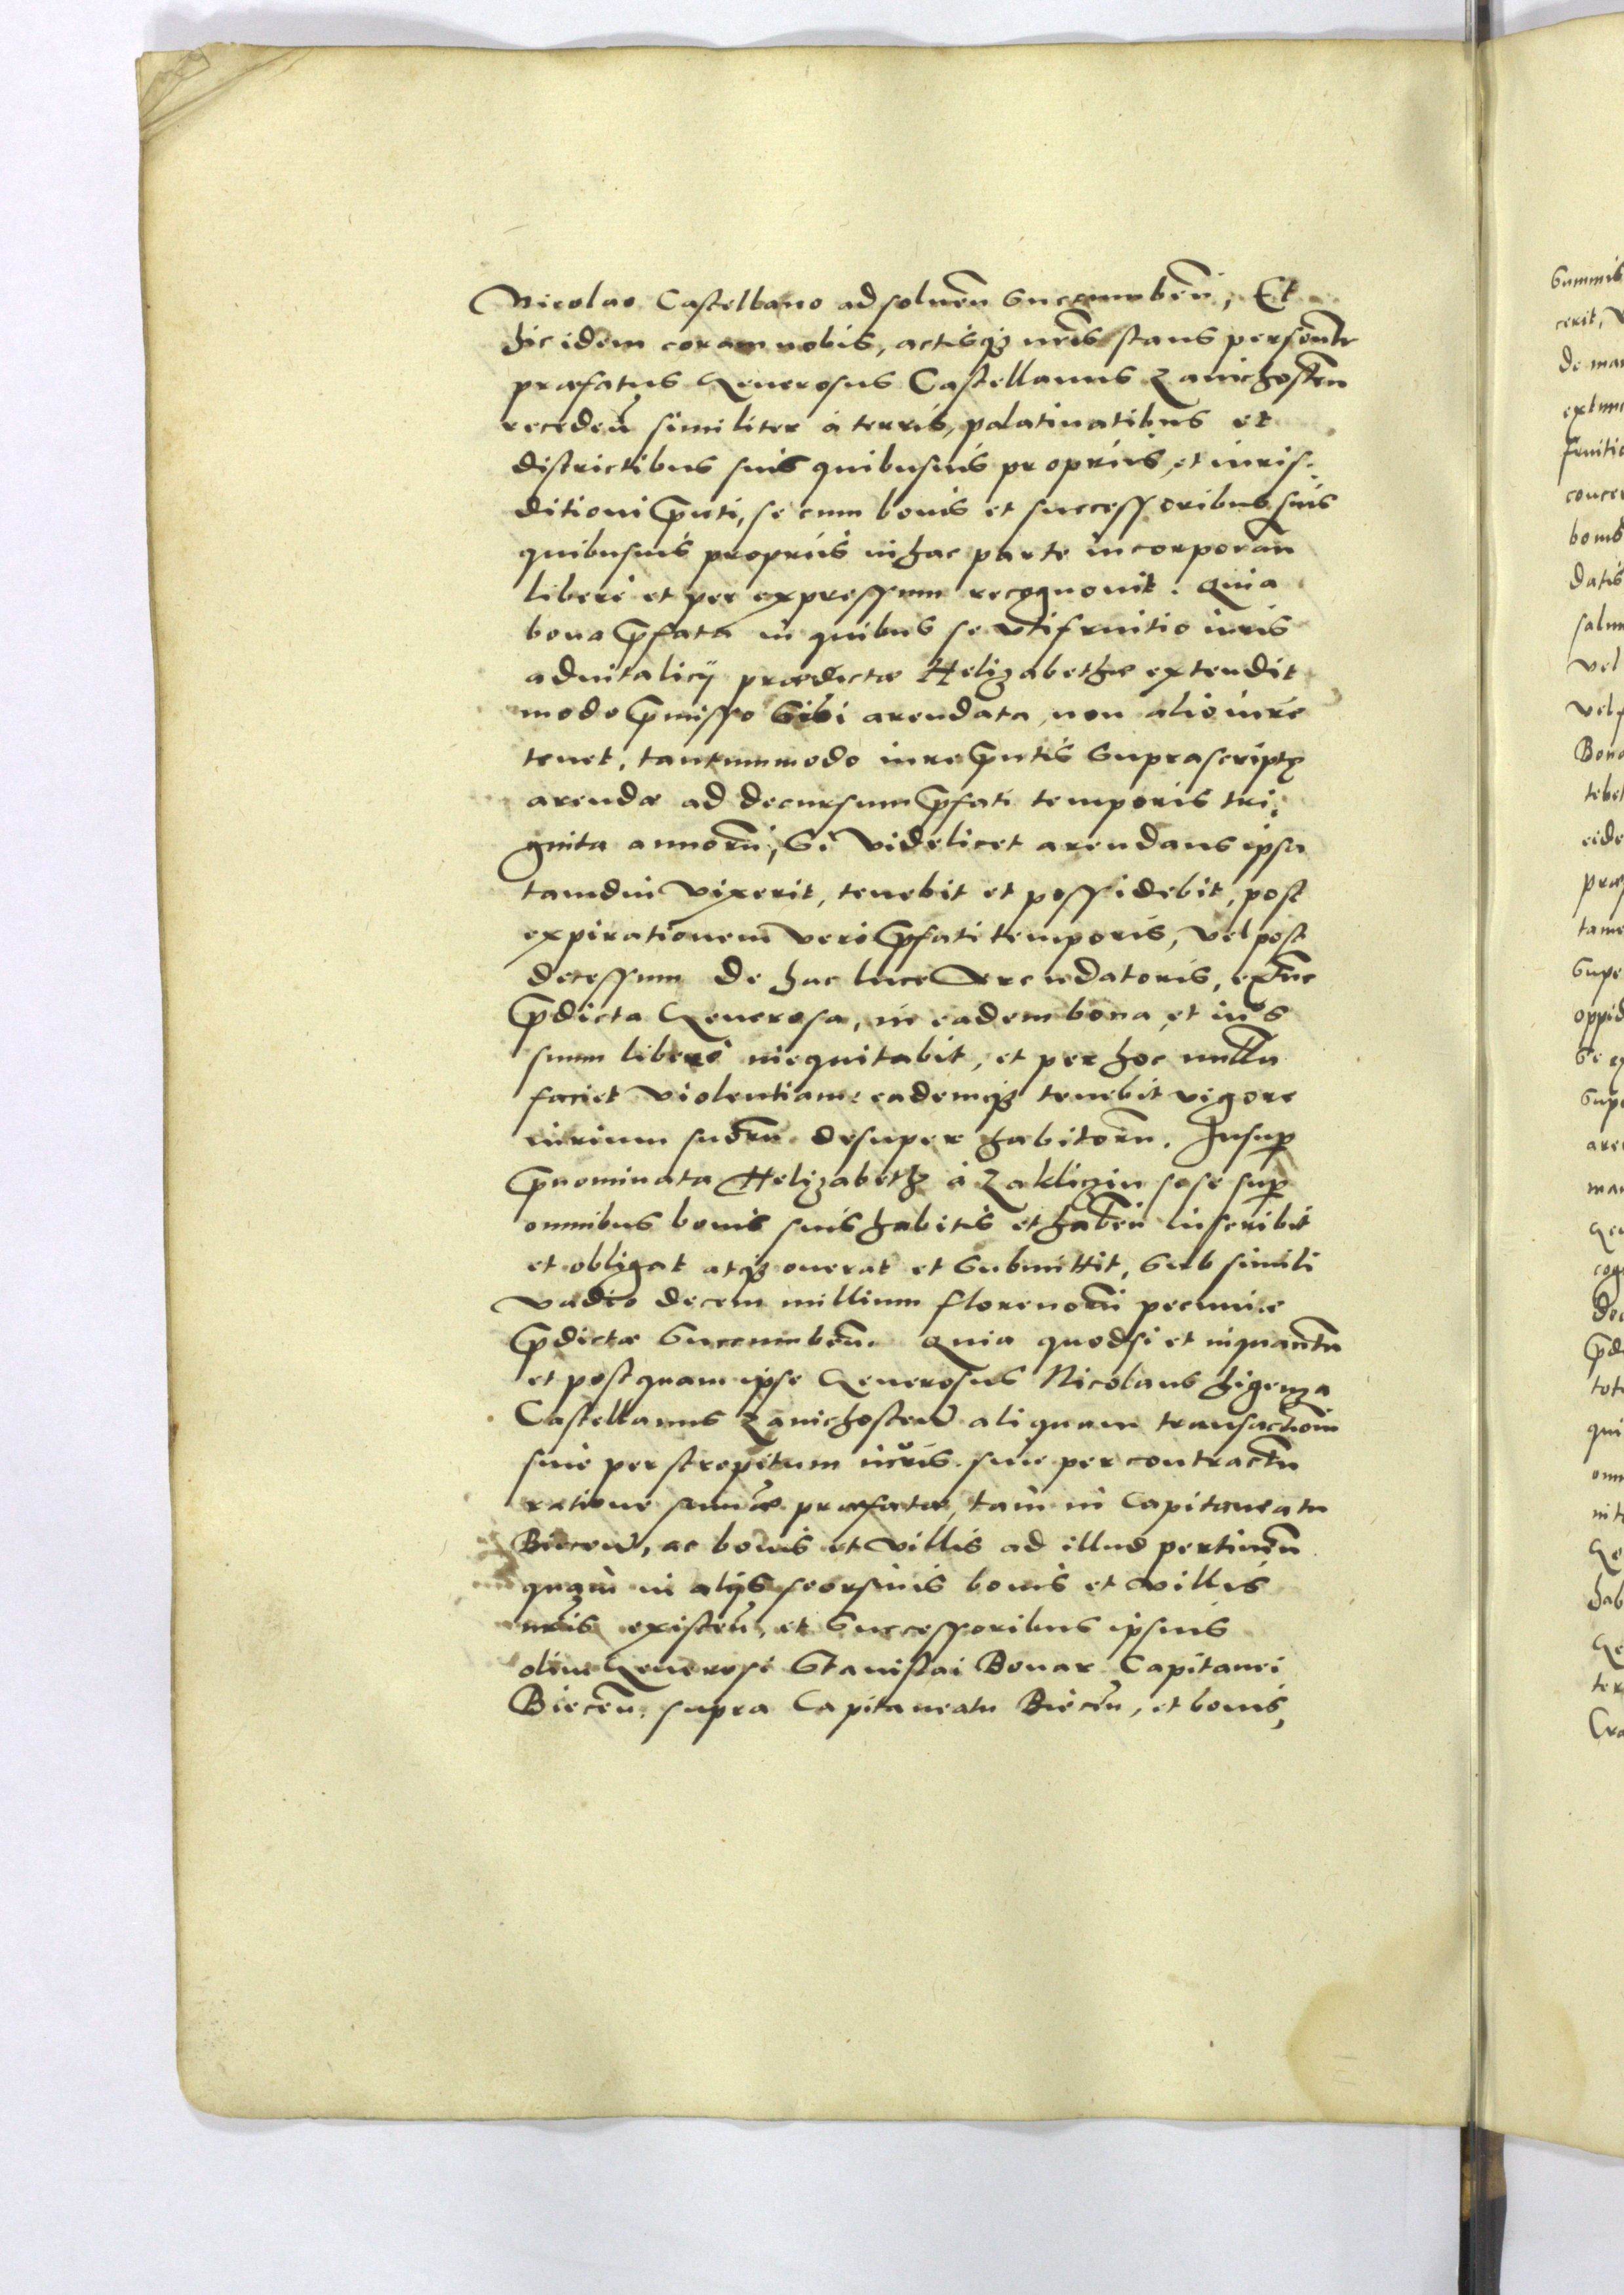 Nicolao Castellano ad soluen̄ Succumben̄, Et
hic idem coram nobis, actisq₃ nr̄is stans personalr̄
præfatus Generosus Castellanus Zawichosten̄
receden̄ similiter à terris, palatinatibus et
districtibus suis quibusuis proprijs, et iuris-
ditioni p̄nti, se cum bonis et successoribus suis
quibusuis proprijs in hac parte incorporan̄
liberè et per expressum recognouit. Quia
bona p̄fata in quibus se vtifruitio iuris
aduitalicij prædictæ Helizabethæ extendit
modo p̄misso Sibi arendata, non alio iure
tenet, tantummodo iure p̄ntis Suprascriptę
arendæ ad decursum p̄fati temporis tri-
ginta annorū, Si videlicet arendans ipsa
tamdiu vixerit, tenebit et possidebit, post
expirationem verò p̄fati temporis, vel post
decessum de hac luce Arendatoris, extūc
p̄dicta Generosa, in eadem bona, et ius
suum liberè inequitabit, et per hoc nullā
faciet violentiam: eademq₃ tenebit vigore
iurium suorū desuper habitorū. Insup̄
p̄nominata Helizabeth à Zakliczin sese sup̄
omnibus bonis suis habitis et haben̄ inscribit
et obligat atq₃ onerat et Submittit, Sub simili
vadio decem millium florenorū pecuniæ
p̄dictæ Succumben̄. Quia quodsi et inquantū
et postquam ipse Generosus Nicolaus Ligenza
Castellanus Zawichosten̄ aliquam transactionē
siue per strepitum iuris siue per contractū
ratione sum̄æ præfatæ, tam in Capitaneatu
Biecen̄, ac bonis et villis ad illud pertinen̄
quam in alijs seorsiuis bonis et villis
nr̄is existen̄, et Successoribus ipsius
olim Generosi Stanislai Bonar Capitanei
Biecen̄. supra Capitaneatu Biecen̄, et bonis,